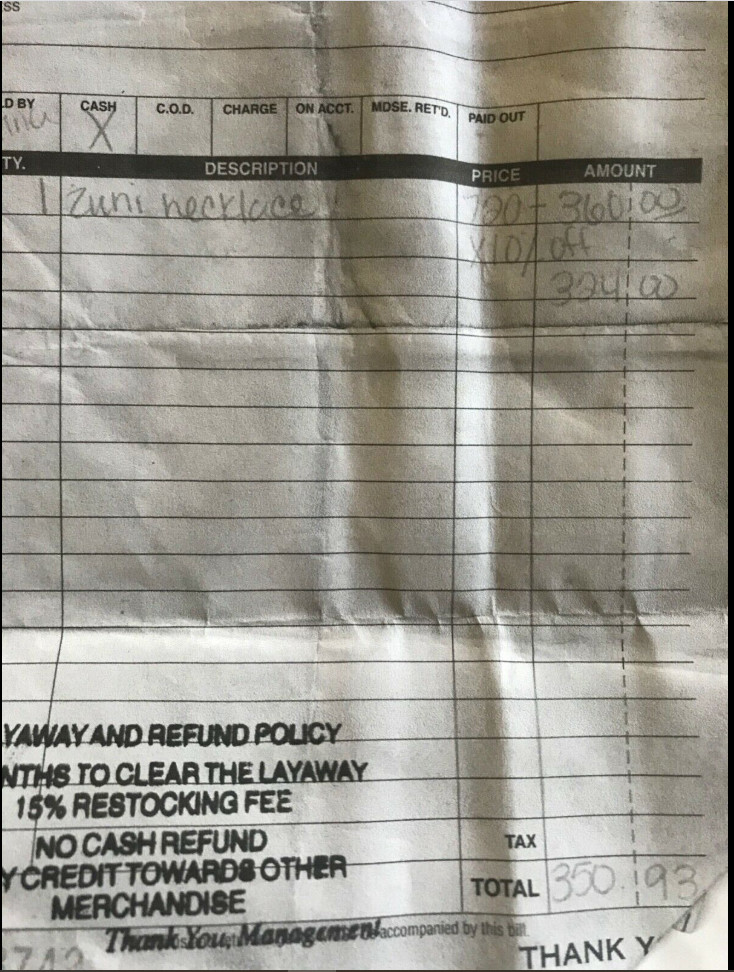 SS
LD BY CASH C.O.D. CHARGE ON ACCT. MDSE. RET'D. PAID OUT
X
TY. DESCRIPTION PRICE AMOUNT
1 Zuni necklace 720 - 360 00
X10% off
324 00
YAWAY AND REFUND POLICY
NTHS TO CLEAR THE LAYAWAY
15% RESTOCKING FEE
NO CASH REFUND
TAX
Y CREDIT TOWARDS OTHER
TOTAL 350 93
MERCHANDISE
Thank You, Management accompanied by this bill.
THANK Y